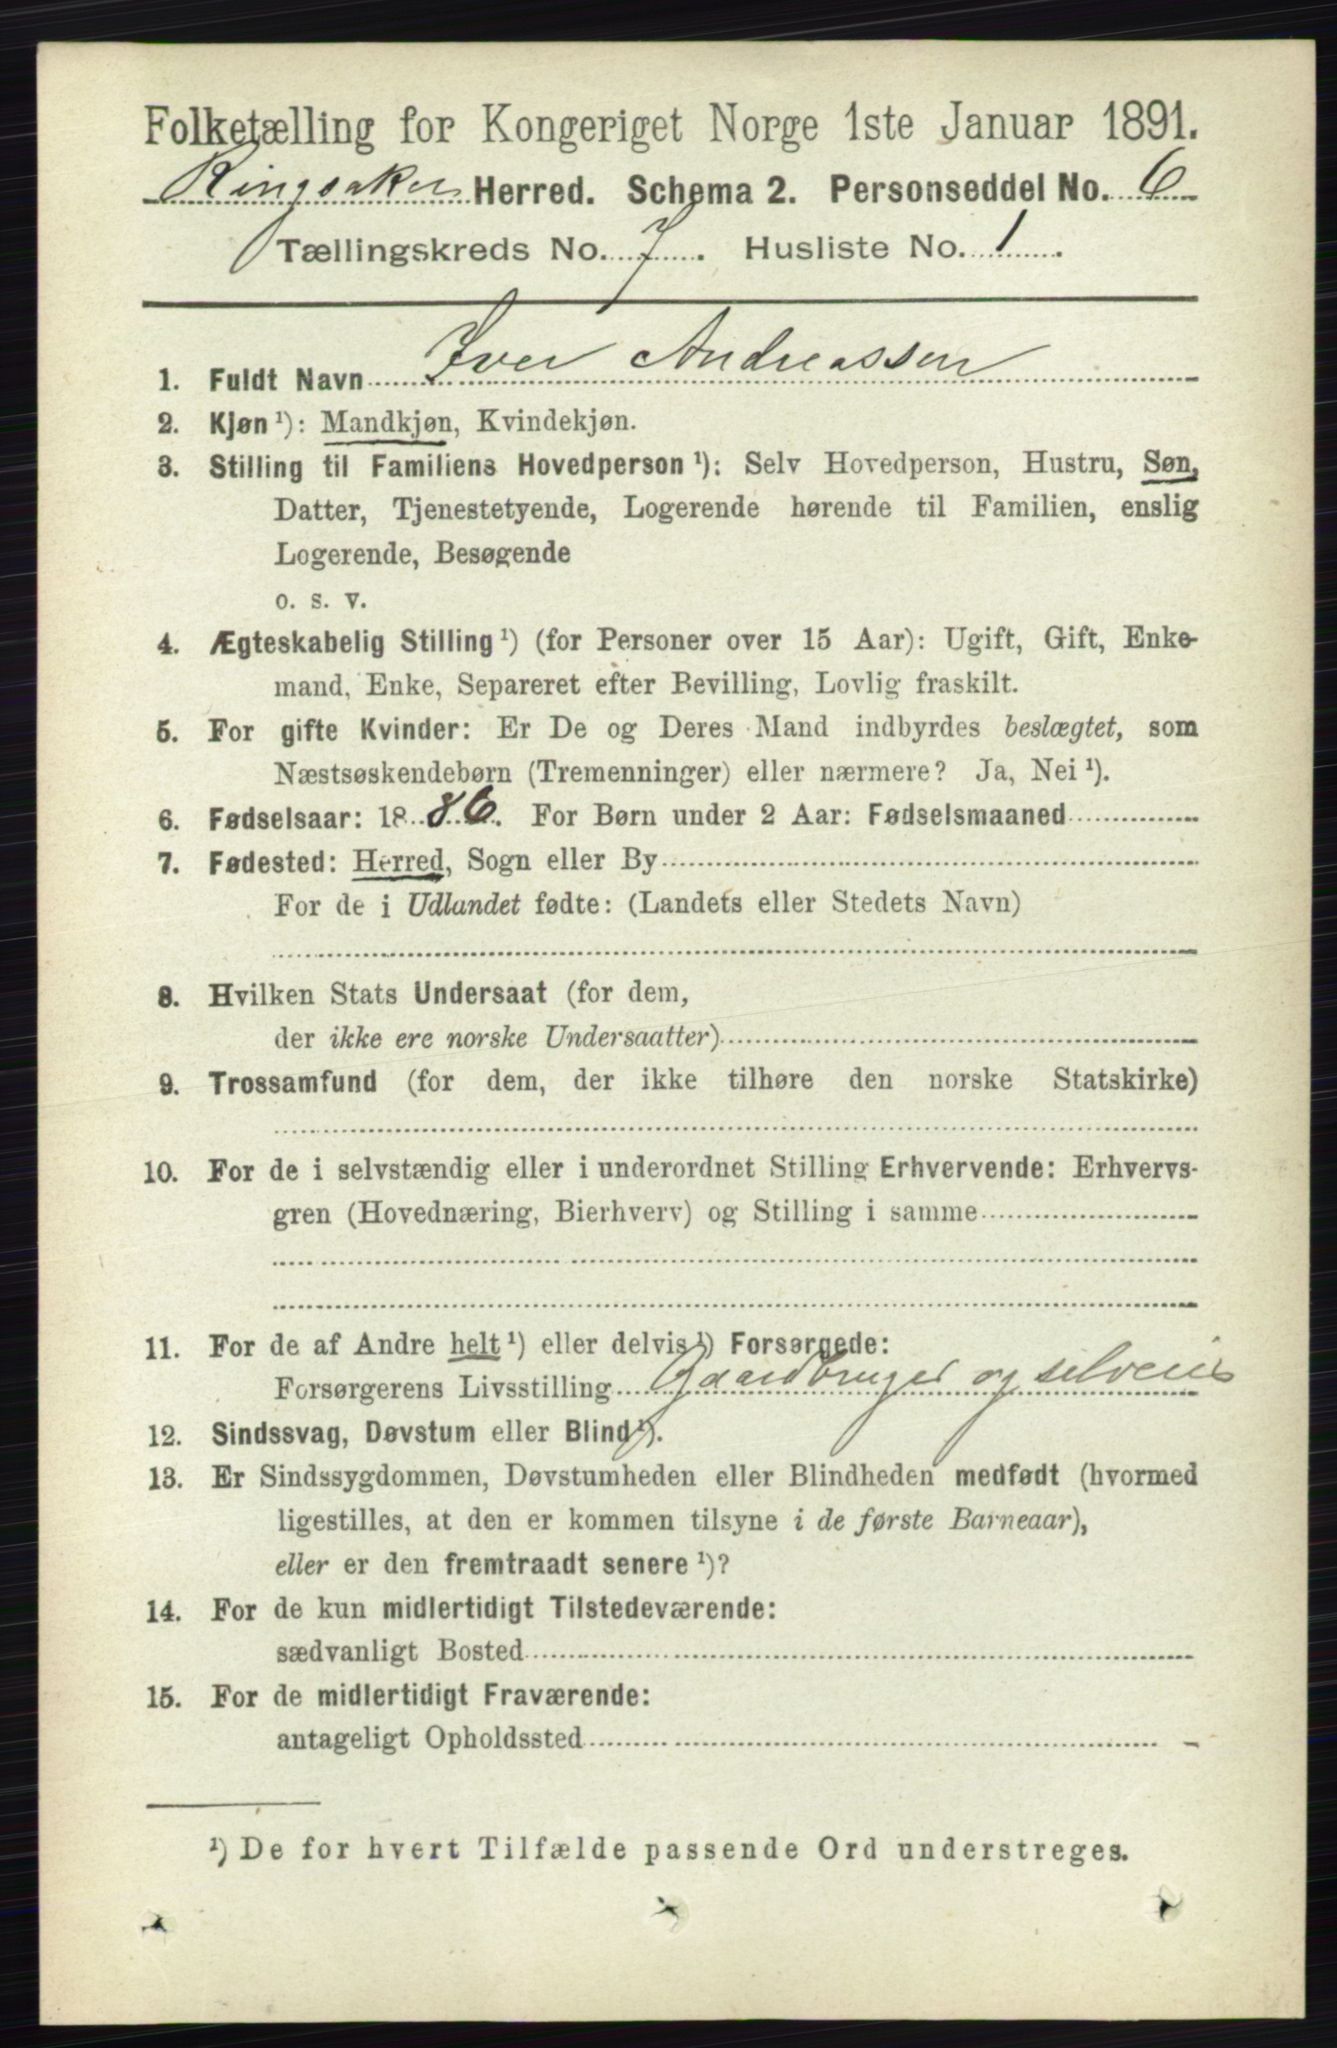 Folketælling for Kongeriget Norge 1ste Januar 1891.
Ringsaker Herred. Schema 2. Personseddel No. 6
Tællingskreds No. 7. Husliste No. 1.
1. Fuldt Navn Iver Andreassen
2. Kjøn ¹): Mandkjøn, Kvindekjøn.
3. Stilling til Familiens Hovedperson ¹): Selv Hovedperson, Hustru, Søn,
Datter, Tjenestetyende, Logerende hørende til Familien, enslig
Logerende, Besøgende
o. s. v.
4. Ægteskabelig Stilling ¹) (for Personer over 15 Aar): Ugift, Gift, Enke-
mand, Enke, Separeret efter Bevilling, Lovlig fraskilt.
5. For gifte Kvinder: Er De og Deres Mand indbyrdes beslægtet, som
Næstsøskendebørn (Tremenninger) eller nærmere? Ja, Nei ¹).
6. Fødselsaar: 1886. For Børn under 2 Aar: Fødselsmaaned
7. Fødested: Herred, Sogn eller By
For de i Udlandet fødte: (Landets eller Stedets Navn)
8. Hvilken Stats Undersaat (for dem,
der ikke ere norske Undersaatter)
9. Trossamfund (for dem, der ikke tilhøre den norske Statskirke)
10. For de i selvstændig eller i underordnet Stilling Erhvervende: Erhvervs-
gren (Hovednæring, Bierhverv) og Stilling i samme
11. For de af Andre helt ¹) eller delvis ¹) Forsørgede:
Forsørgerens Livsstilling Gaardbruger og selveier
12. Sindssvag, Døvstum eller Blind ¹).
13. Er Sindssygdommen, Døvstumheden eller Blindheden medfødt (hvormed
ligestilles, at den er kommen tilsyne i de første Barneaar),
eller er den fremtraadt senere ¹)?
14. For de kun midlertidigt Tilstedeværende:
sædvanligt Bosted
15. For de midlertidigt Fraværende:
antageligt Opholdssted
¹) De for hvert Tilfælde passende Ord understreges.